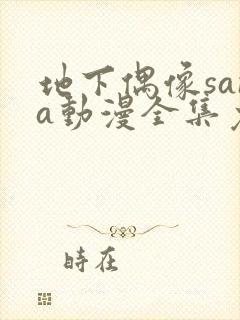 地下偶像sa
a動漫全集
時在